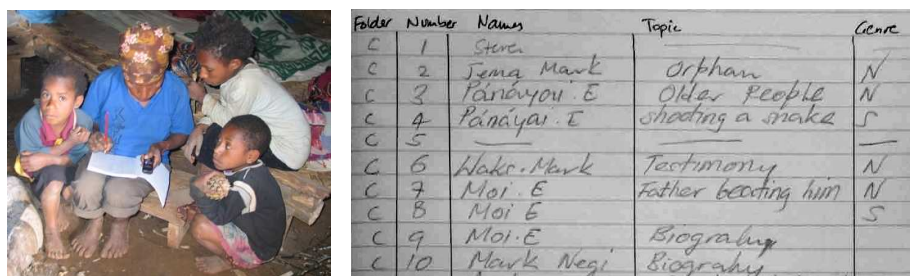 Folder Number Names Topic Genre
C 1 Steven
C 2 Jema Mark Orphan N
C 3 Pánáyou. E Older People N
C 4 Pánáyai. E shooting a snake S
C 5
C 6 Mark Testimony N
C 7 Moi. E Father beating him N
C 8 Moi E S
C 9 Moi. E Biograhy
C 10 Mark Negi Biograhy